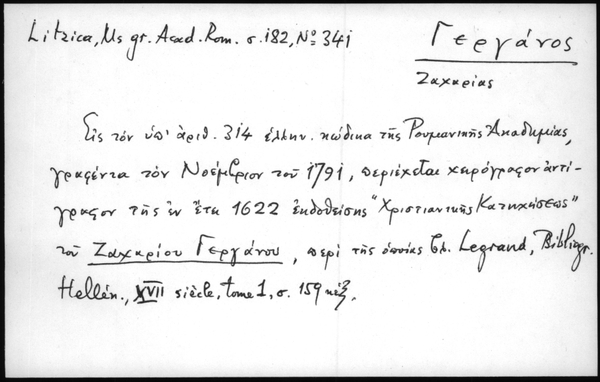 Litzica, Ms gr. Acad. Rom. σ. 182, No 341
Γεργάνος
Ζαχαρίας
Εἰς τόν ὑπ' ἀριθ. 314 ἑλλην. κώδικα τῆς Ρουμανικῆς Ἀκαδημίας,
γραφέντα τόν Νοέμβριον τοῦ 1791, περιέχεται χειρόγραφον ἀντί-
γραφον τῆς ἐν ἔτει 1622 ἐκδοθείσης "Χριστιανικῆς Κατηχήσεως"
τοῦ Ζαχαρίου Γεργάνου, περί τῆς ὁποίας βλ. Legrand, Bibliogr.
Hellén., XVII siècle, tome 1, σ. 159 κἑξ.